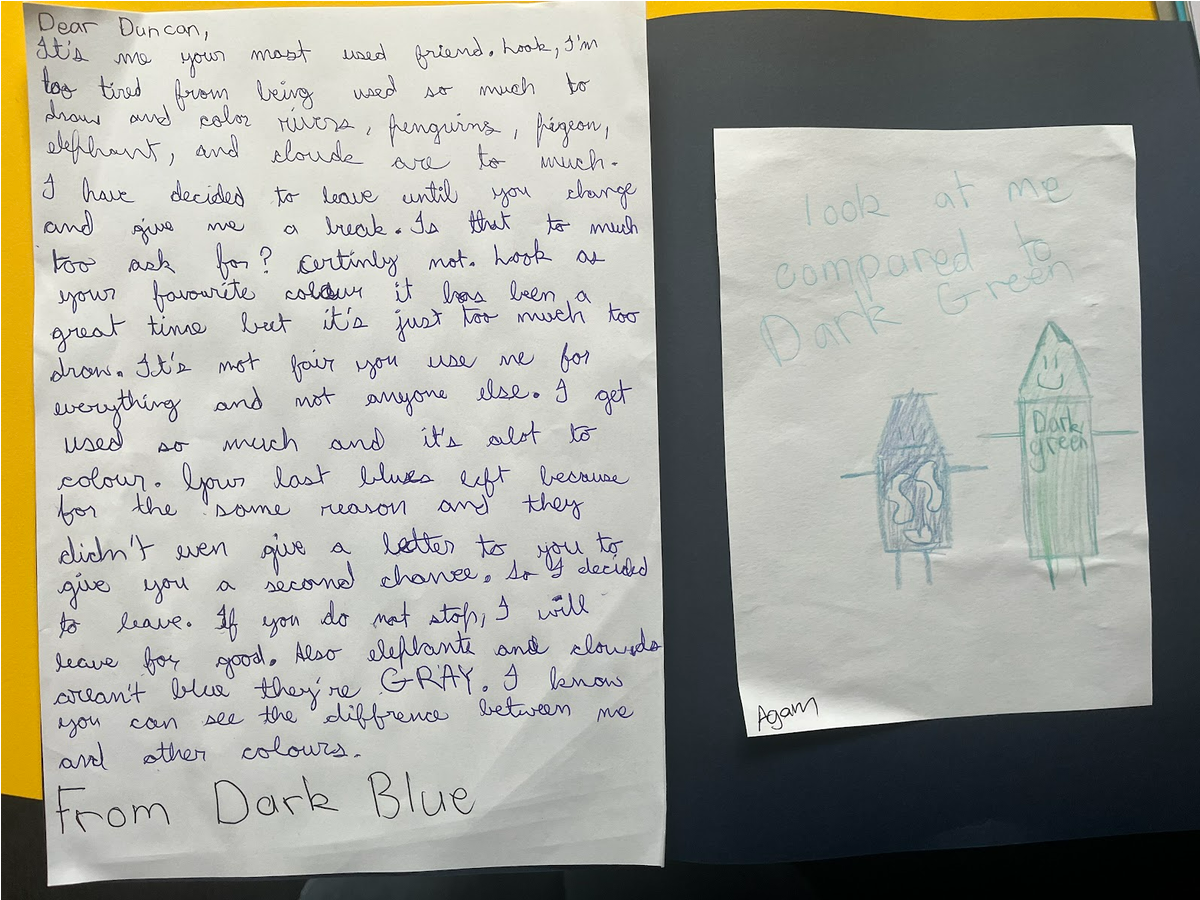 Dear Duncan,
It's me your most used friend. Look, I'm
too tired from being used so much to
draw and color rivers, penguins, pigeon,
elephant, and clouds are to much.
I have decided to leave until you change
and give me a break. Is that to much
too ask for? Certinly not. Look as
your favourite colour it has been a
great time but it's just too much too
draw. It's not fair you use me for
everything and not anyone else. I get
used so much and it's alot to
colour. Your last blues left because
for the same reason and they
didn't even give a letter to you to
give you a second chance. So I decided
to leave. If you do not stop, I will
leave for good. Also elephants and clowds
arean't blue they're GRAY. I know
you can see the diffrence between me
and other colours.
From Dark Blue
look at me
compared to
Dark Green
Dark
green
Agam